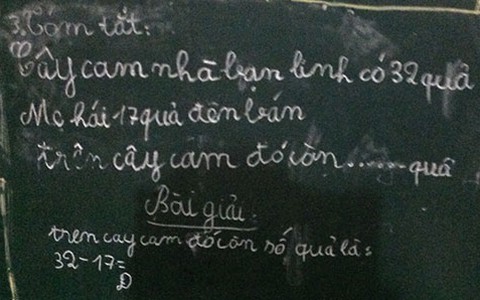 3. Tóm tắt:
Cây cam nhà bạn linh có 32 quả
Mẹ hái 17 quả đên bán
trên cây cam đó còn......quả
Bài giải:
trên cay cam đó còn số quả là:
32-17=
Đ